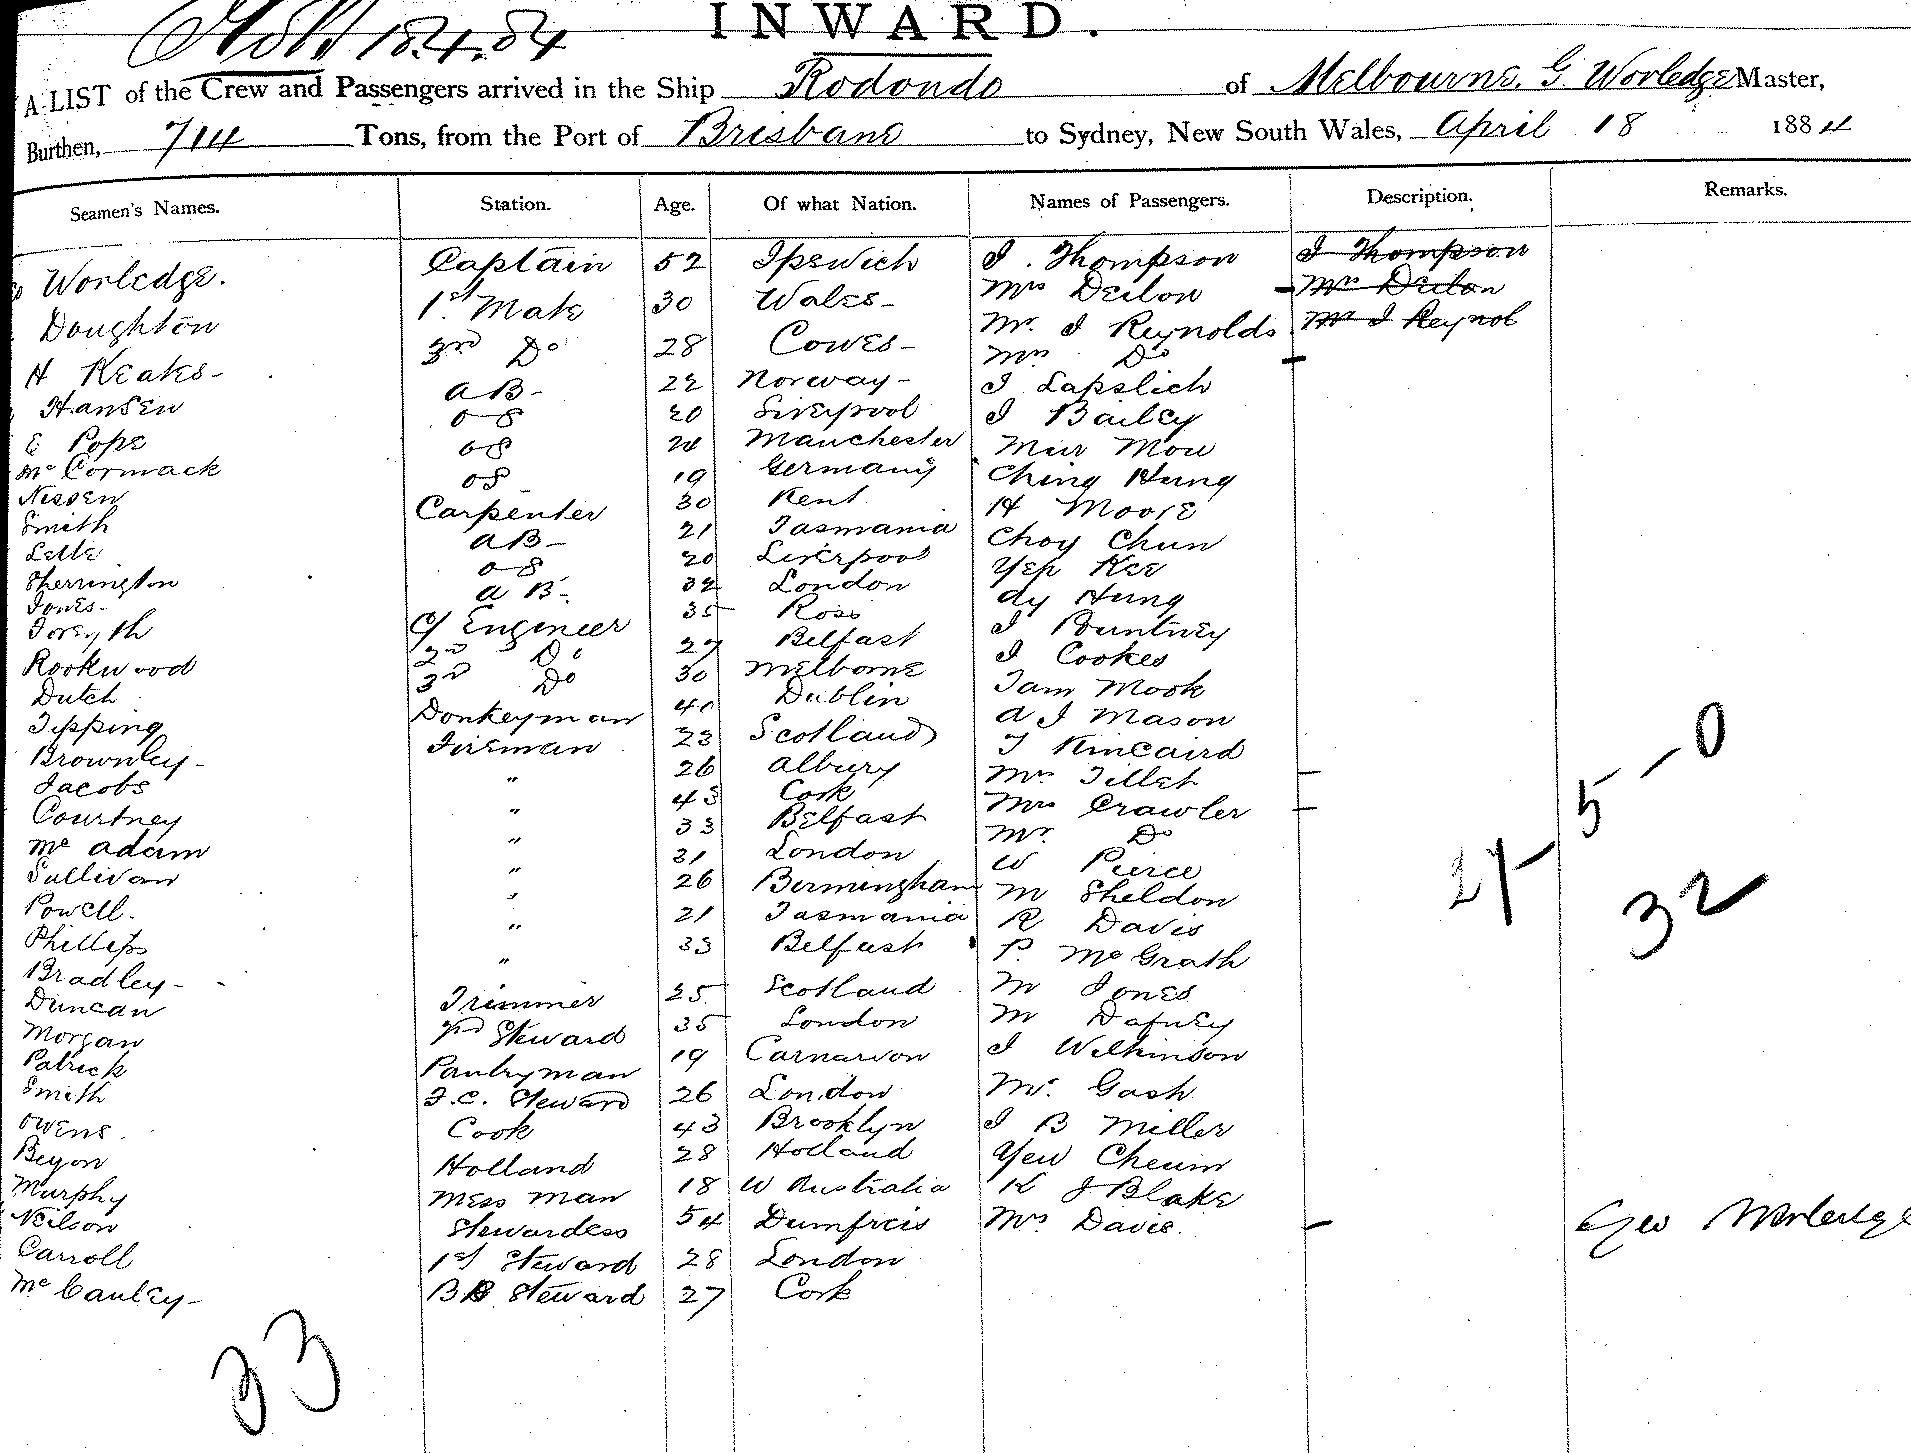 18.4.84
INWARD.
A LIST of the Crew and Passengers arrived in the Ship Rodondo of Melbourne, G Worledge Master,
Burthen, 714 Tons, from the Port of Brisbane to Sydney, New South Wales, April 18 1884
Seamen's Names. Station. Age. Of what Nation. Names of Passengers. Description. Remarks.
Worledge. Captain 52 Ipswich J. Thompson J Thompson
Doughton 1st Mate 30 Wales- Mrs Deilon Mrs Deilon
H Keaks- 3rd Do 28 Cowes- Mr. J Reynolds Mr J Reynol
Hansen AB- 22 Norway- Mrs Do
E Pope OS 20 Liverpool J Lapslich
Mc Cormack OS 20 Manchester J Bailey
Nissen OS 19 Germany Mur Mou
Smith Carpenter 30 Kent Ching Hung
Lette AB- 21 Tasmania H Moore
Sherrington OS 20 Liverpool Choy Chun
Jones- A B- 32 London Yep Kee
Forsyth C/ Engineer 35 Ross Ay Hung
Rookwood 2nd Do 27 Belfast J Pountney
Dutch 3rd Do 30 Melborne J Cookes
Tipping Donkeyman 40 Dublin Tam Mook
Brownley- Fireman 23 Scotland A J Mason
Jacobs " 26 Albury T Kincaird
Courtney " 43 Cork Mrs Tillet
Mc Adam " 33 Belfast Mrs Crawler
Sullivan " 31 London Mr. Do
Powell. " 26 Birmingham W Pierce
Phillips " 21 Tasmania M Sheldon
Bradley- " 33 Belfast R Davis
Duncan Trimmer 25 Scotland P. Mc Grath
Morgan 2nd Steward 35 London M Jones
Patrick Pantryman 19 Carnarvon M Dafney
Smith F.C. Steward 26 London J Wilkinson
Owens. Cook 43 Brooklyn Mr. Gash
Beyon Holland 28 Holland J B Miller
Murphy Mess man 18 W Australia Yew Cheum
Neilson Stewardess 54 Dumfreis K J Blake
Carroll 1st Steward 28 London Mrs Davis.
Mc Cauley- BB Steward 27 Cork
5 - 0
27
32
Geo Worledge
33